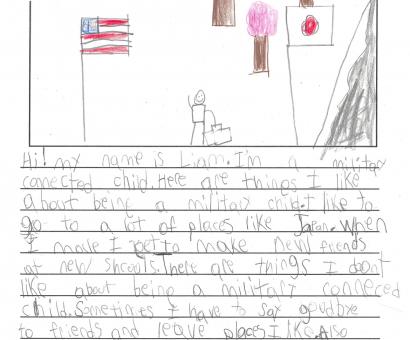 Hi! my name is Liam. I'm a military
conected child. Here are things I like
about being a military child. I like to
go to a lot of places like Japan. When
I move I get to make new friends
at new shcools. There are things I don't
like about being a military conneced
child. Sometimes I have to say goodbye
to friends and leave places I like. Also